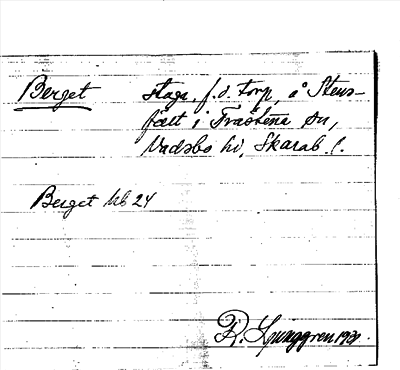 Berget stuga, f.d. torp, å Stens-
fält i Fredsberg sn,
Vadsbo hd, Skarab. l.
Berget hb 24
R. Ljunggren 193